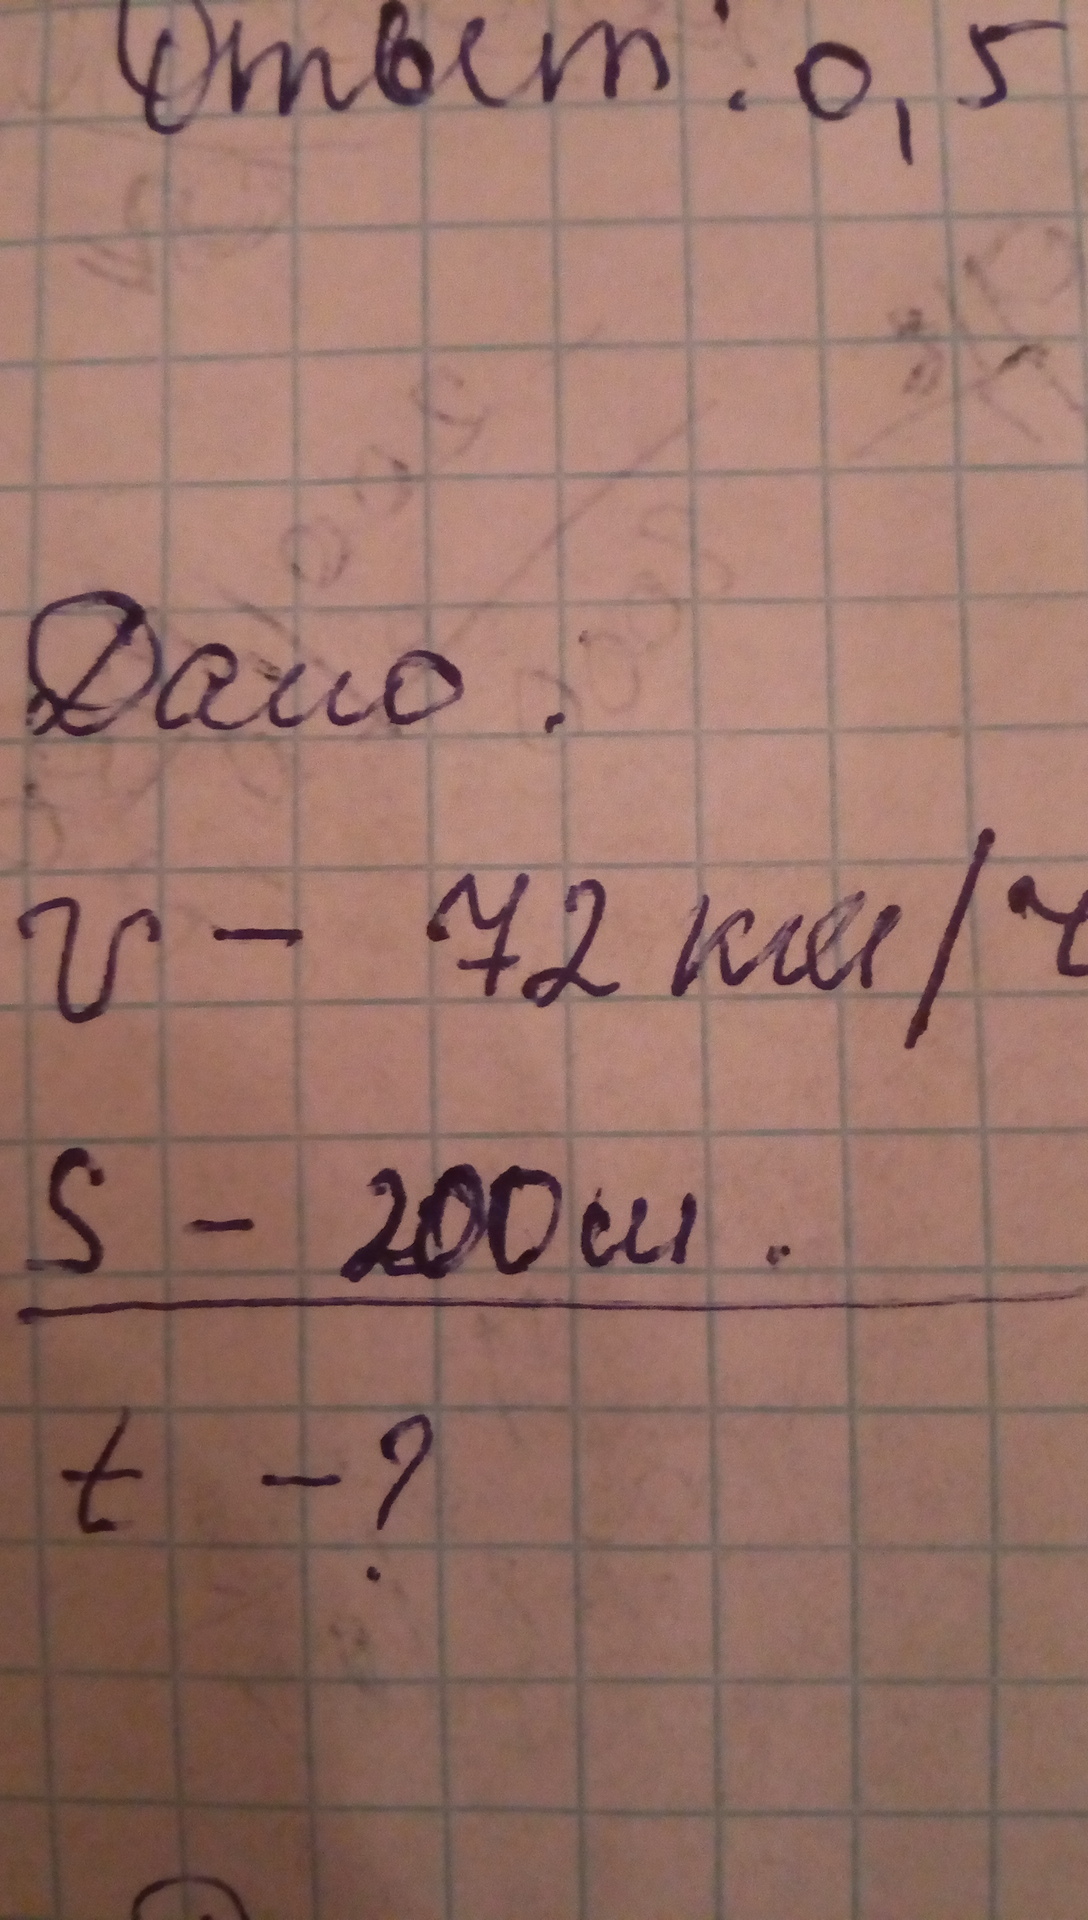 Ответ: 0,5
Дано.
v - 72 км/ч
S - 200 м.
t - ?